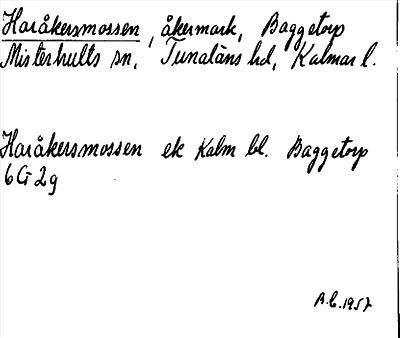 Haråkersmossen, åkermark, Baggetorp
Misterhults sn, Tunaläns hd, Kalmar l.
Haråkersmossen ek Kalm bl. Baggetorp
6G2g
B.C. 1957